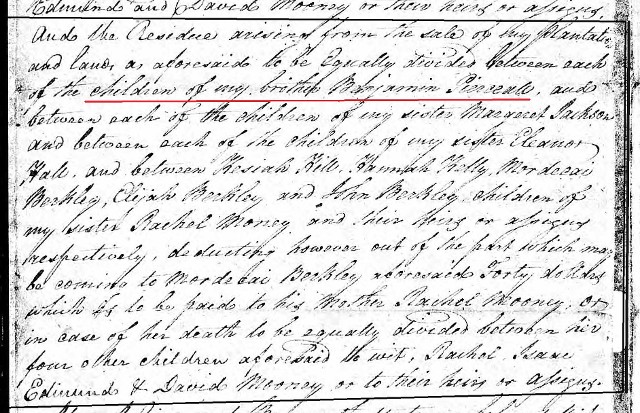 Edmund and David Mooney or their heirs or assigns.
And the Residue arising from the sale of my plantation
and land, as aforesaid to be Equally divided between each
of the children of my brother Benjamin Pinceall, and
between each of the children of my sister Margaret Jackson
and between each of the children of my sister Eleanor
Hall, and between Kesiah Hill, Hannah Kelly, Mordecai
Berkley, Elijah Berkley, and John Berkley, children of
my sister Rachel Money, and their heirs or assigns
respectively, deducting however out of the part which may
be coming to Mordecai Beckley aforesaid Forty dollars
which is to be paid to his Mother Rachel Mooney, or
in case of her death to be equally divided between her
four other children aforesaid to wit, Rachel, Isaac
Edmund & David Mooney or to their heirs or assigns.